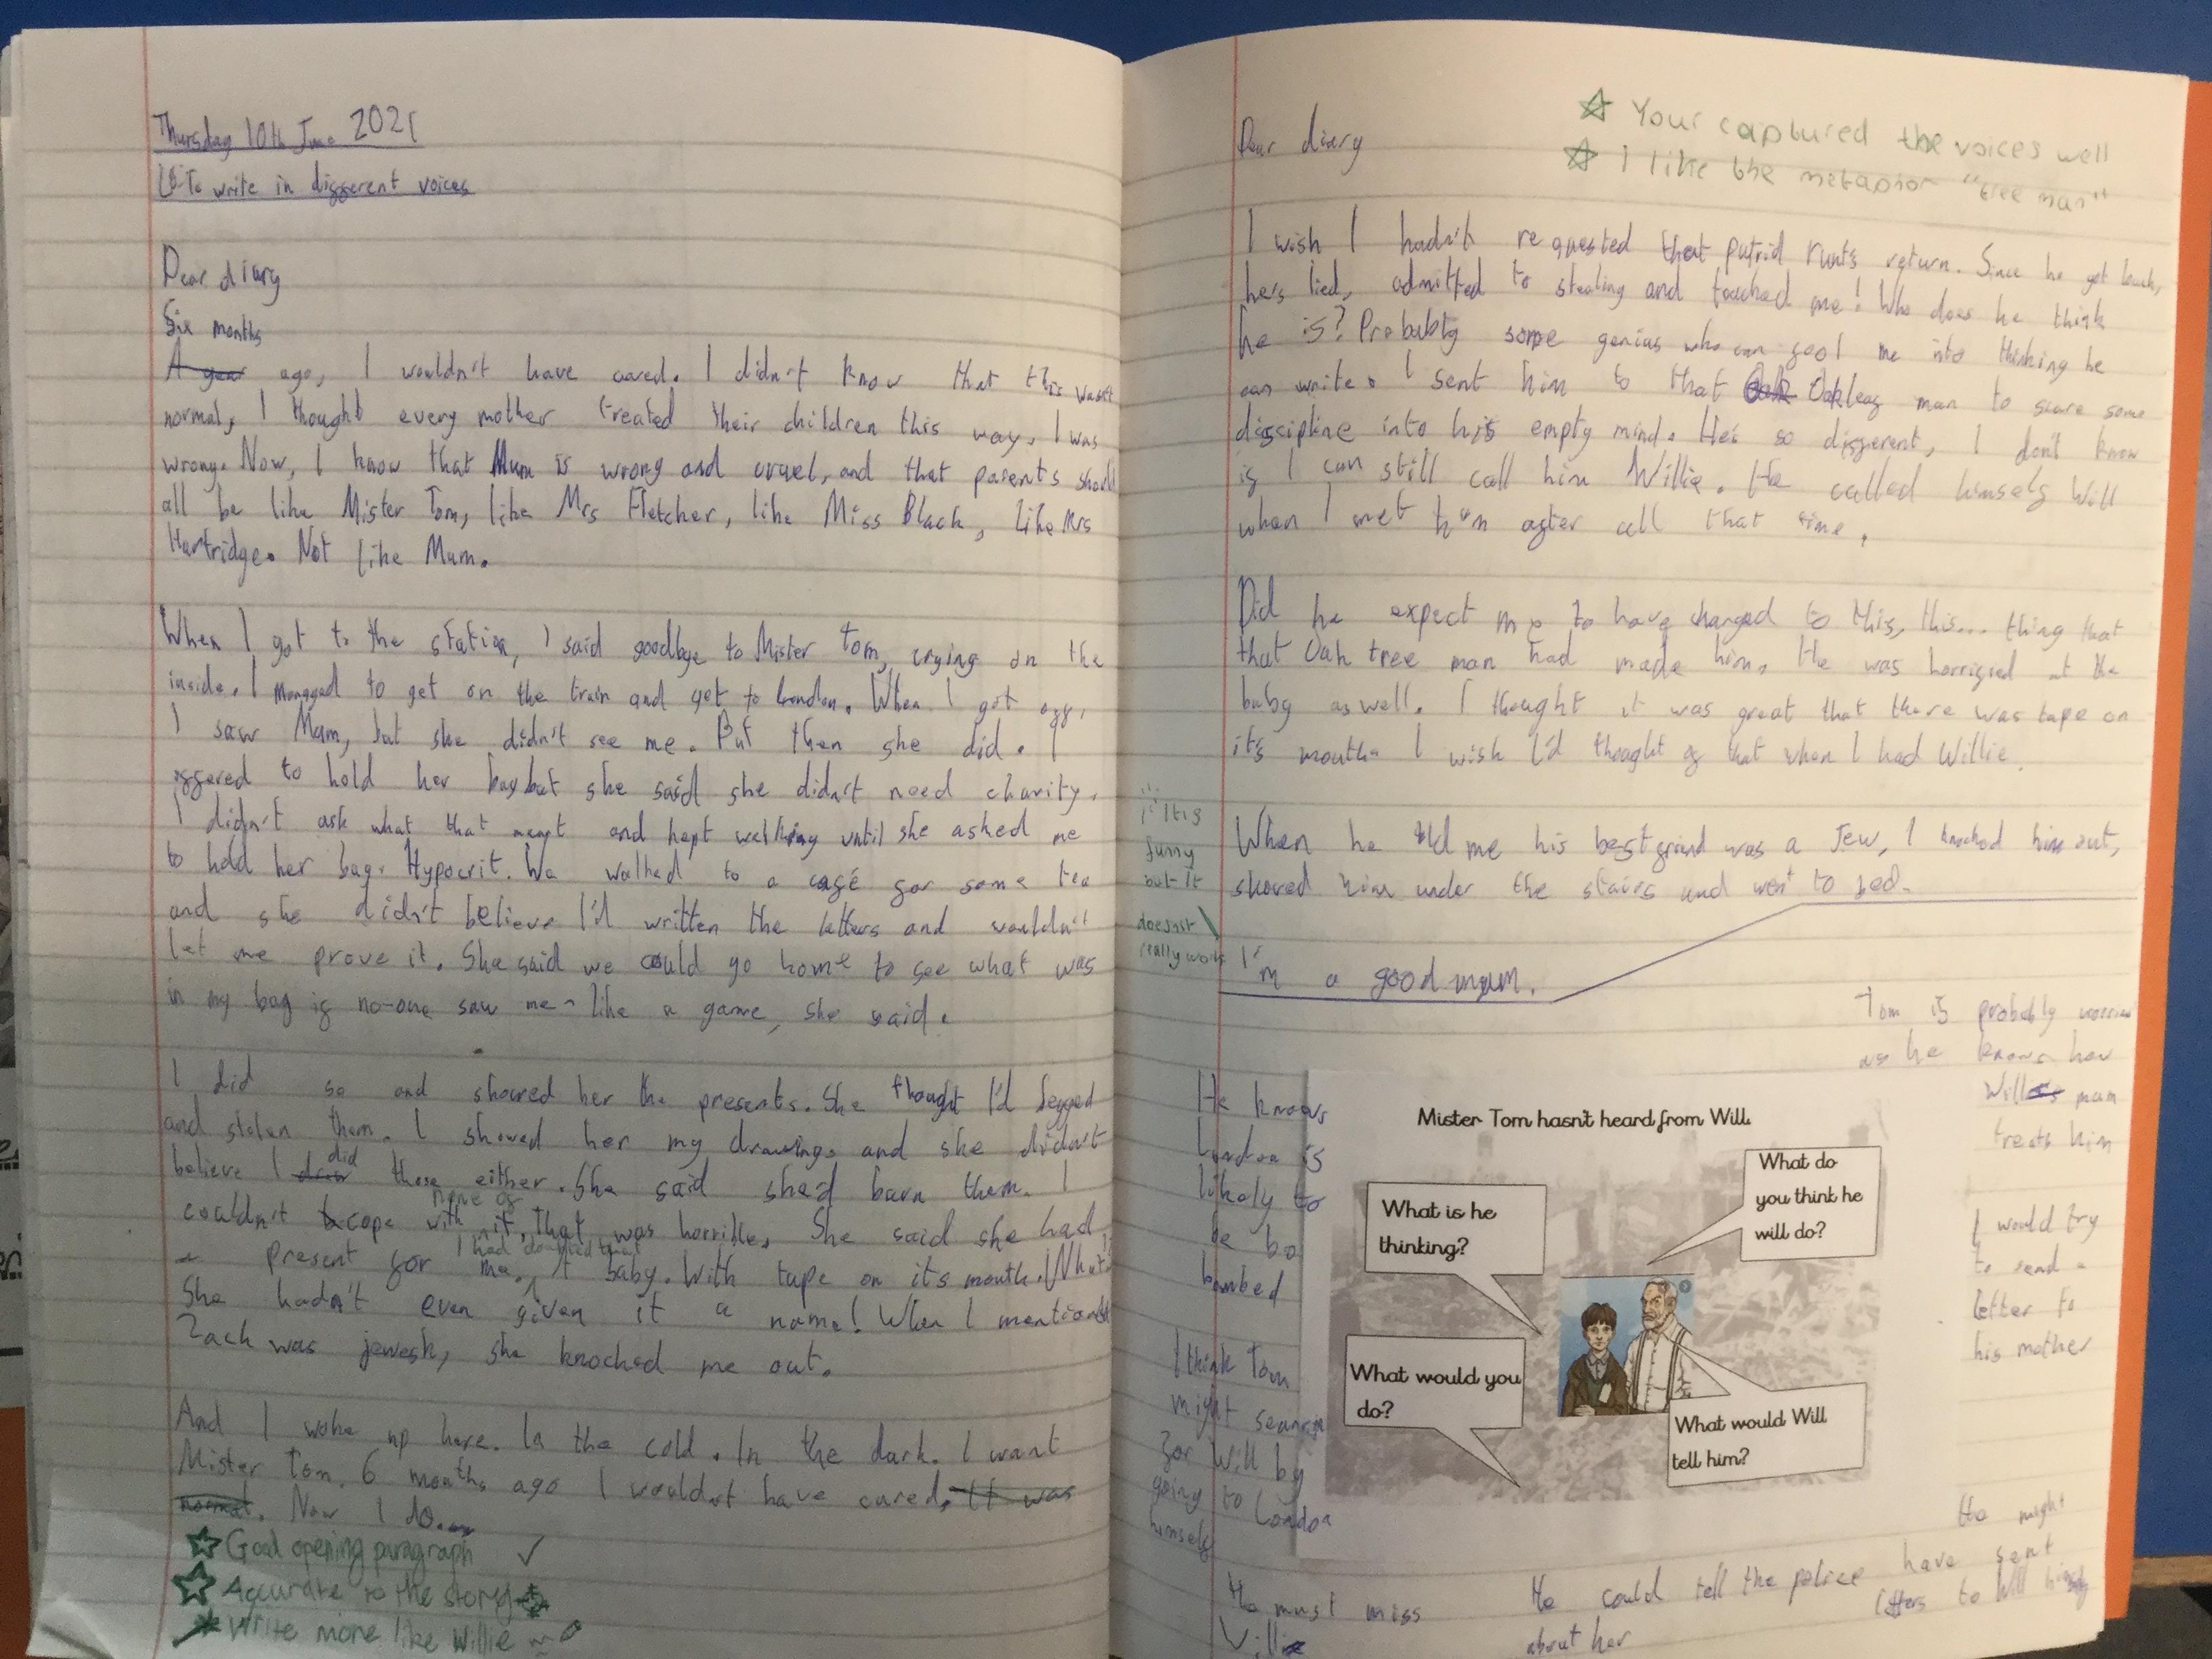 Thursday 10th June 2021
LO-To write in different voices
Dear diary
Six months
A year ago, I wouldn't have cared. I didn't know that this wasn't
normal, I thought every mother treated their children this way. I was
wrong. Now, I know that Mum is wrong and cruel, and that parents should
all be like Mister Tom, like Mrs Fletcher, like Miss Black, like Mrs
Hartridge. Not like Mum.
When I got to the station, I said goodbye to Mister Tom, crying on the
inside. I mangged to get on the train and get to London. When I got off,
I saw Mum, but she didn't see me. But then she did. I
offered to hold her bag but she said she didn't need charity.
I didn't ask what that meant and kept walking until she asked me
to hold her bag. Hypocrit. We walked to a café for some tea
and she didn't believe I'd written the letters and wouldn't
let me prove it. She said we could go home to see what was
in my bag if no-one saw me - like a game, she said.
I did so and showed her the presents. She thought I'd begged
and stolen them. I showed her my drawings and she didn't
believe I did those either. She said she'd burn them. I
couldn't cope with none of it, that was horrible. She said she had
a present for me, I had doubted that. A baby. With tape on its mouth. What?
She hadn't even given it a name! When I mentioned
Zach was jewesh, she knocked me out.
And I woke up here. In the cold. In the dark. I want
Mister Tom. 6 months ago I wouldn't have cared. It was
normal. Now I do.
Good opening paragraph ✓
Accurate to the story
Write more like Willie
Dear diary
☆ Your captured the voices well
☆ I like the metaphor "tree man"
I wish I hadn't requested that putrid runt's return. Since he got back,
he's lied, admitted to stealing and touched me! Who does he think
he is? Probably some genius who can fool me into thinking he
can write. I sent him to that Oakleaf man to scare some
discipline into his empty mind. He's so different, I don't know
if I can still call him Willie. He called himself Will
when I met him after all that time.
Did he expect me to have changed to this, this... thing that
that Oak tree man had made him. He was horrified at the
baby as well. I thought it was great that there was tape on
it's mouth. I wish I'd thought of that when I had Willie.
When he told me his best friend was a Jew, I knocked him out,
shoved him under the stairs and went to bed.
I'm a good mum.
It is
funny
but it
doesn't
really work
Tom is probably worried
as he knows how
Will's mum
treats him
He knows
London is
likely to
be bo
bombed
Mister Tom hasn't heard from Will.
What is he
thinking?
What do
you think he
will do?
What would you
do?
What would Will
tell him?
I would try
to send a
letter to
his mother
I think Tom
might search
for Will by
going to London
himself
He must miss
Willie
He could tell the police
about her
He might
have sent
letters to Will